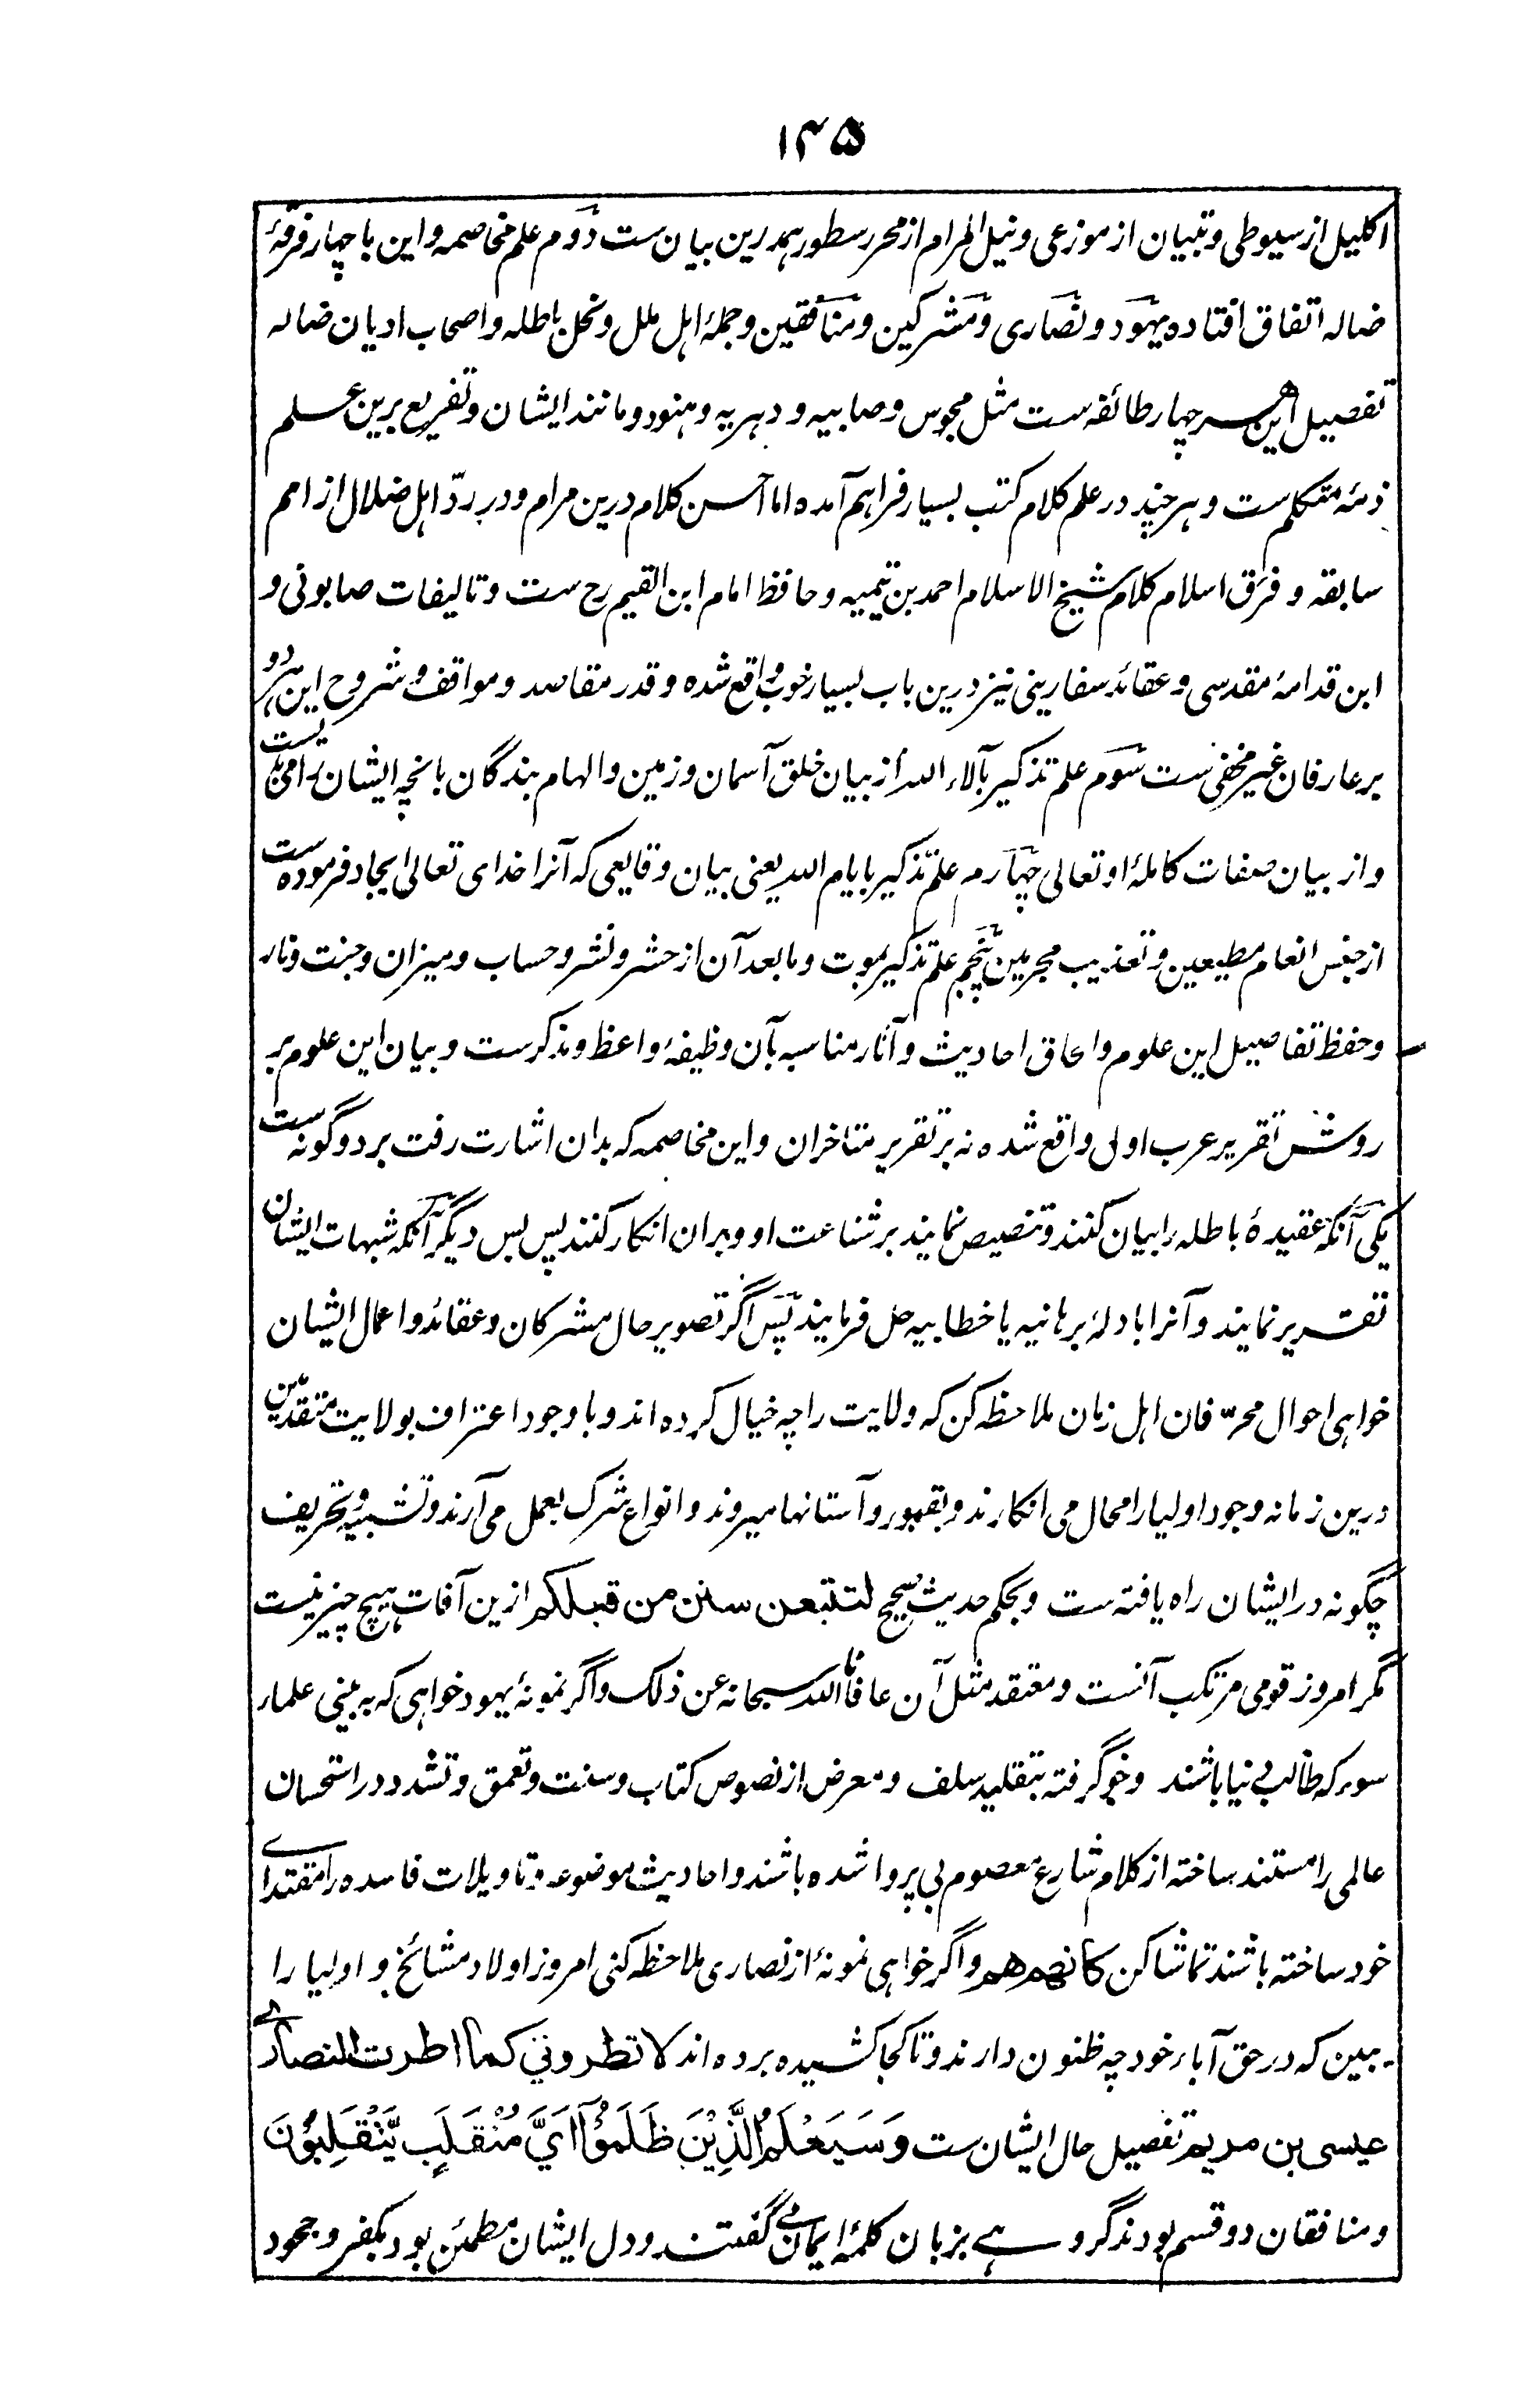 ۱۴۵
اکلیل از سیوطی و تبیان از موزعی و نیل المرام از محرر سطور همدرین بیان ست دوم علم مخاصمه و این با چهار فرقهٔ
ضاله اتفاق افتاده یهود و نصاری و مشرکین و منافقین و جملهٔ اهل ملل و نحل باطله و اصحاب ادیان ضاله
تفصیل این هر چهار طائفه ست مثل مجوس و صابیه و دهریه و هنود و مانند ایشان و تفریع برین علم
ذمهٔ متکلم ست و هر چند در علم کلام کتب بسیار فراهم آمده اما احسن کلام درین مرام و در ردّ اهل ضلال از امم
سابقه و فرق اسلام کلام شیخ الاسلام احمد بن تیمیه و حافظ امام ابن القیم رح ست و تالیفات صابونی و
ابن قدامهٔ مقدسی و عقائد سفارینی نیز درین باب بسیار خوب واقع شده و قدر مقاصد و مواقف و شروح این هر دو
بر عارفان غیر مخفی ست سوم علم تذکیر بآلاء الله از بیان خلق آسمان و زمین و الهام بندگان بانچه ایشان را می بایست
و از بیان صفات کاملهٔ او تعالی چهارم علم تذکیر بایام الله یعنی بیان وقایعی که آنرا خدای تعالی ایجاد فرموده ست
از جنس انعام مطیعین و تعذیب مجرمین پنجم علم تذکیر بموت و ما بعد آن از حشر و نشر و حساب و میزان و جنت و نار
و حفظ تفاصیل این علوم و الحاق احادیث و آثار مناسبه بآن وظیفهٔ واعظ و مذکر ست و بیان این علوم بر
روش تقریر عرب اولی واقع شده نه بر تقریر متاخران و این مخاصمه که بدان اشارت رفت بر دو گونه ست
یکی آنکه عقیدهٔ باطله را بیان کنند و تنصیص نمایند بر شناعت او و بران انکار کنند پس بس دیگر آنکه شبهات ایشان
تقریر نمایند و آنرا بادلهٔ برهانیه یا خطابیه حل فرمایند پس اگر تصویر حال مشرکان و عقائد و اعمال ایشان
خواهی احوال محرّفان اهل زمان ملاحظه کن که ولایت را چه خیال کرده اند و با وجود اعتراف بولایت متقدمین
درین زمانه وجود اولیا را محال می انکارند و بقبور و آستانها میروند و انواع شرک بعمل می آرند و تشبیه و تحریف
چگونه در ایشان راه یافته ست و بحکم حدیث صحیح لتتبعن سنن من قبلکم ازین آفات هیچ چیز نیست
مگر امروز قومی مرتکب آنست و معتقد مثل آن عافانا الله سبحانه عن ذلک و اگر نمونهٔ یهود خواهی که به بینی علماء
سوء که طالب دنیا باشند و خو گرفته بتقلید سلف و معرض از نصوص کتاب و سنت و تعمق و تشدد در استحسان
عالمی را مستند ساخته از کلام شارع معصوم بی پروا شده باشند و احادیث موضوعه و تاویلات فاسده را مقتدای
خود ساخته باشند تماشا کن کانهم هم و اگر خواهی نمونهٔ از نصاری ملاحظه کنی امروز اولاد مشائخ و اولیا را
ببین که در حق آباء خود چه ظنون دارند و تا کجا کشیده برده اند لا تطرونی کما اطرت النصاری
عیسی بن مریم تفصیل حال ایشان ست وَسَیَعْلَمُ الَّذِیْنَ ظَلَمُوْآ اَیَّ مُنْقَلَبٍ یَّنْقَلِبُوْنَ
و منافقان دو قسم بودند گروهی بزبان کلمهٔ ایمان می گفتند و دل ایشان مطمئن بود بکفر و جحود